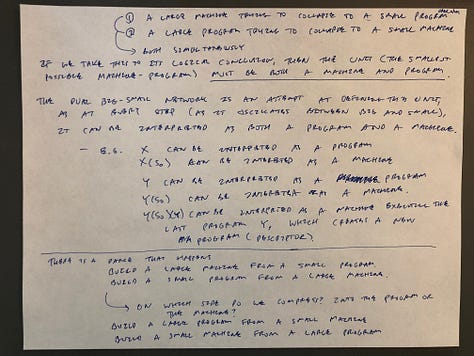 ① A LARGE MACHINE TRYING TO COLLAPSE TO A SMALL PROGRAM
② A LARGE PROGRAM TRYING TO COLLAPSE TO A SMALL MACHINE
↳ BOTH SIMULTANEOUSLY
IF WE TAKE THIS TO ITS LOGICAL CONCLUSION, THEN THE UNIT (THE SMALLEST
POSSIBLE MACHINE-PROGRAM) MUST BE BOTH A MACHINE AND PROGRAM.
THE DUAL BIG-SMALL NETWORK IS AN ATTEMPT AT DEFINING THIS UNIT,
AS AT EVERY STEP (AS IT OSCILLATES BETWEEN BIG AND SMALL),
IT CAN BE INTERPRETED AS BOTH A PROGRAM AND A MACHINE.
- E.G. X CAN BE INTERPRETED AS A PROGRAM
X(S0) CAN BE INTERPRETED AS A MACHINE
Y CAN BE INTERPRETED AS A PROGRAM
Y(S0) CAN BE INTERPRETED AS A MACHINE.
Y(S0)(Y) CAN BE INTERPRETED AS A MACHINE EXECUTING THE
LAST PROGRAM Y, WHICH CREATES A NEW
PROGRAM (DESCRIPTOR).
THERE IS A DANCE THAT HAPPENS
BUILD A LARGE MACHINE FROM A SMALL PROGRAM
BUILD A SMALL PROGRAM FROM A LARGE MACHINE.
↳ ON WHICH SIDE DO WE COMPRESS? INTO THE PROGRAM OR
THE MACHINE?
BUILD A LARGE PROGRAM FROM A SMALL MACHINE
BUILD A SMALL MACHINE FROM A LARGE PROGRAM